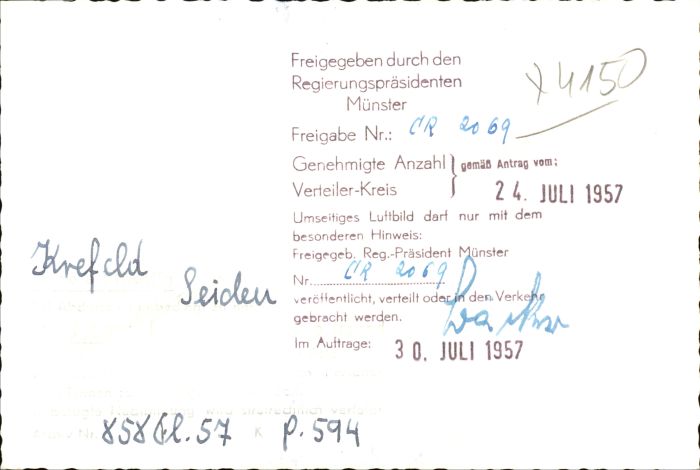 Freigegeben durch den
Regierungspräsidenten
Münster
X 4150
Freigabe Nr.: CR 2069
Genehmigte Anzahl } gemäß Antrag vom:
Verteiler-Kreis 24. JULI 1957
Umseitiges Luftbild darf nur mit dem
besonderen Hinweis:
Freigegeb. Reg.-Präsident Münster
Nr. CR 2069
veröffentlicht, verteilt oder in den Verkehr
gebracht werden.
Im Auftrage: 30. JULI 1957
Krefeld
Seiden
858 57 K p. 594